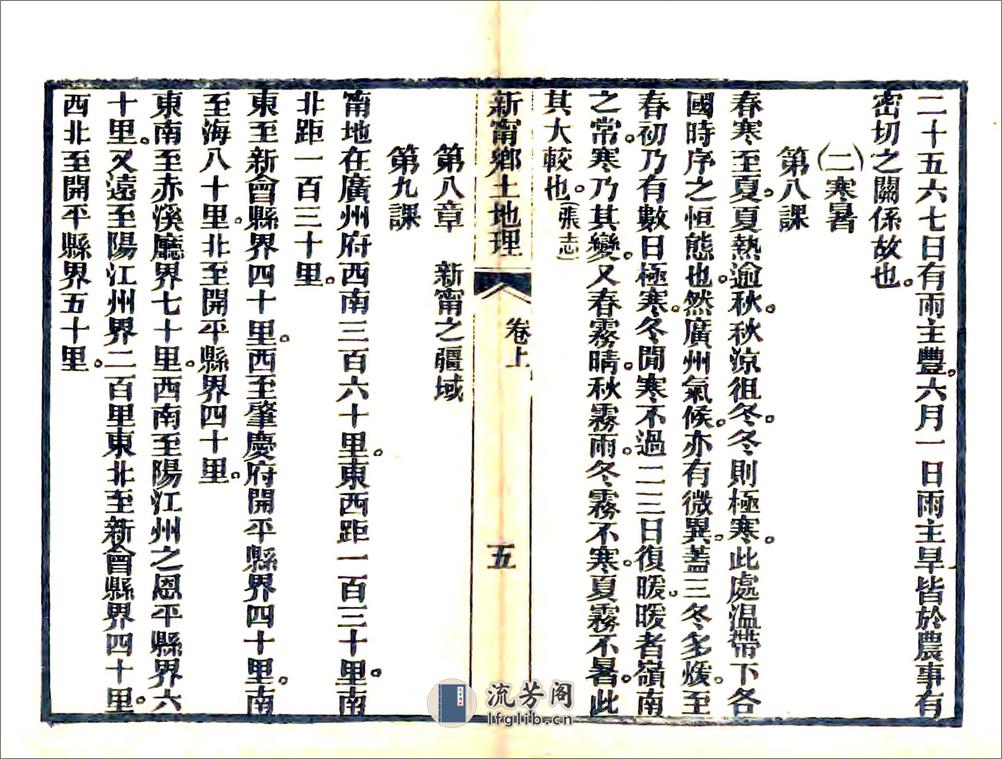 二十五六七日有雨主豐。六月一日雨主旱皆於農事有
密切之關係故也。
(二)寒暑
第八課
春寒至夏。夏熱逾秋。秋涼徂冬。冬則極寒。此處溫帶下各
國時序之恒態也。然廣州氣候。亦有微異。蓋三冬多煖。至
春初乃有數日極寒。冬間寒不過二三日復暖。暖者嶺南
之常。寒乃其變。又春霧晴。秋霧雨。冬霧不寒。夏霧不暑。此
其大較也。(張志)
新甯鄉土地理 卷上 五
第八章 新甯之疆域
第九課
甯地在廣州府西南三百六十里。東西距一百三十里。南
北距一百三十里。
東至新會縣界四十里。西至肇慶府開平縣界四十里。南
至海八十里。北至開平縣界四十里。
東南至赤溪廳界七十里。西南至陽江州之恩平縣界六
十里。又遠至陽江州界二百里。東北至新會縣界四十里。
西北至開平縣界五十里。
流芳阁
lfglib.cn